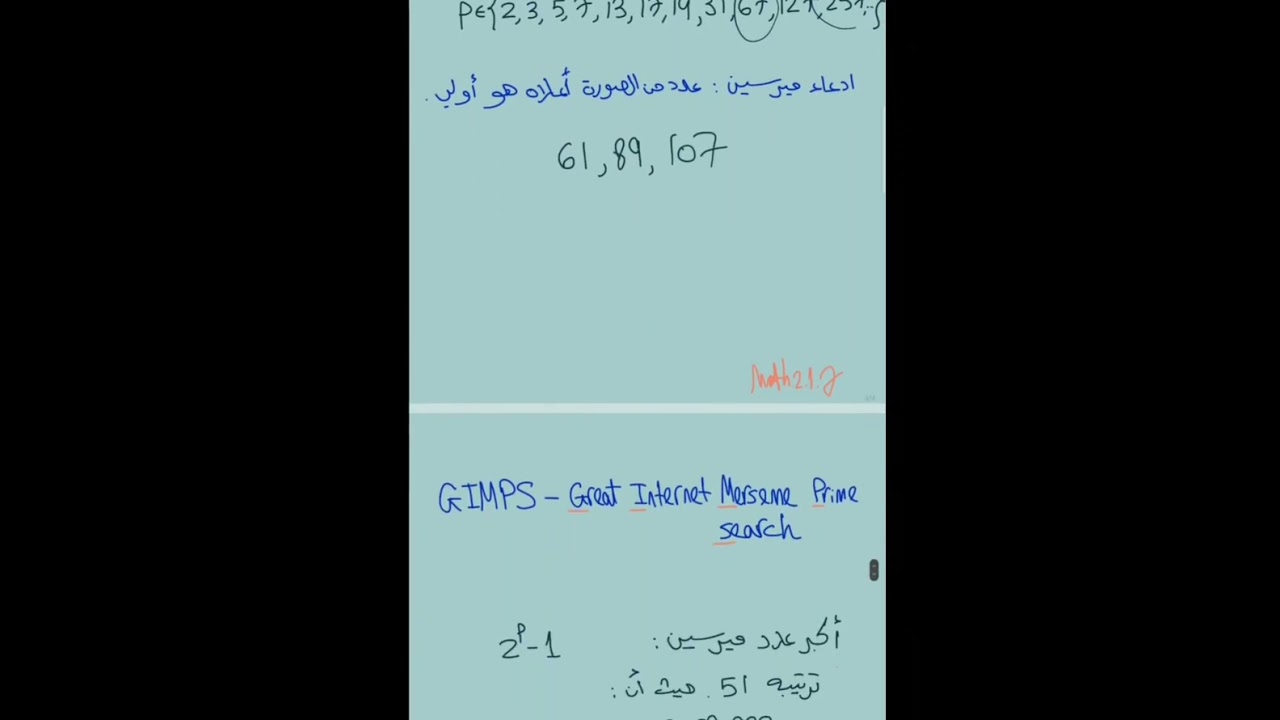 P∈{2,3,5,7,13,17,19,31,67,127,257,..}
ادعاء ميرسين : عدد من الصورة أعلاه هو أولي .
61, 89, 107
Math2.1.7
GIMPS – Great Internet Mersenne Prime
search
أكبر عدد ميرسين : 2^p-1
ترتيبه 51 . حيث أن :